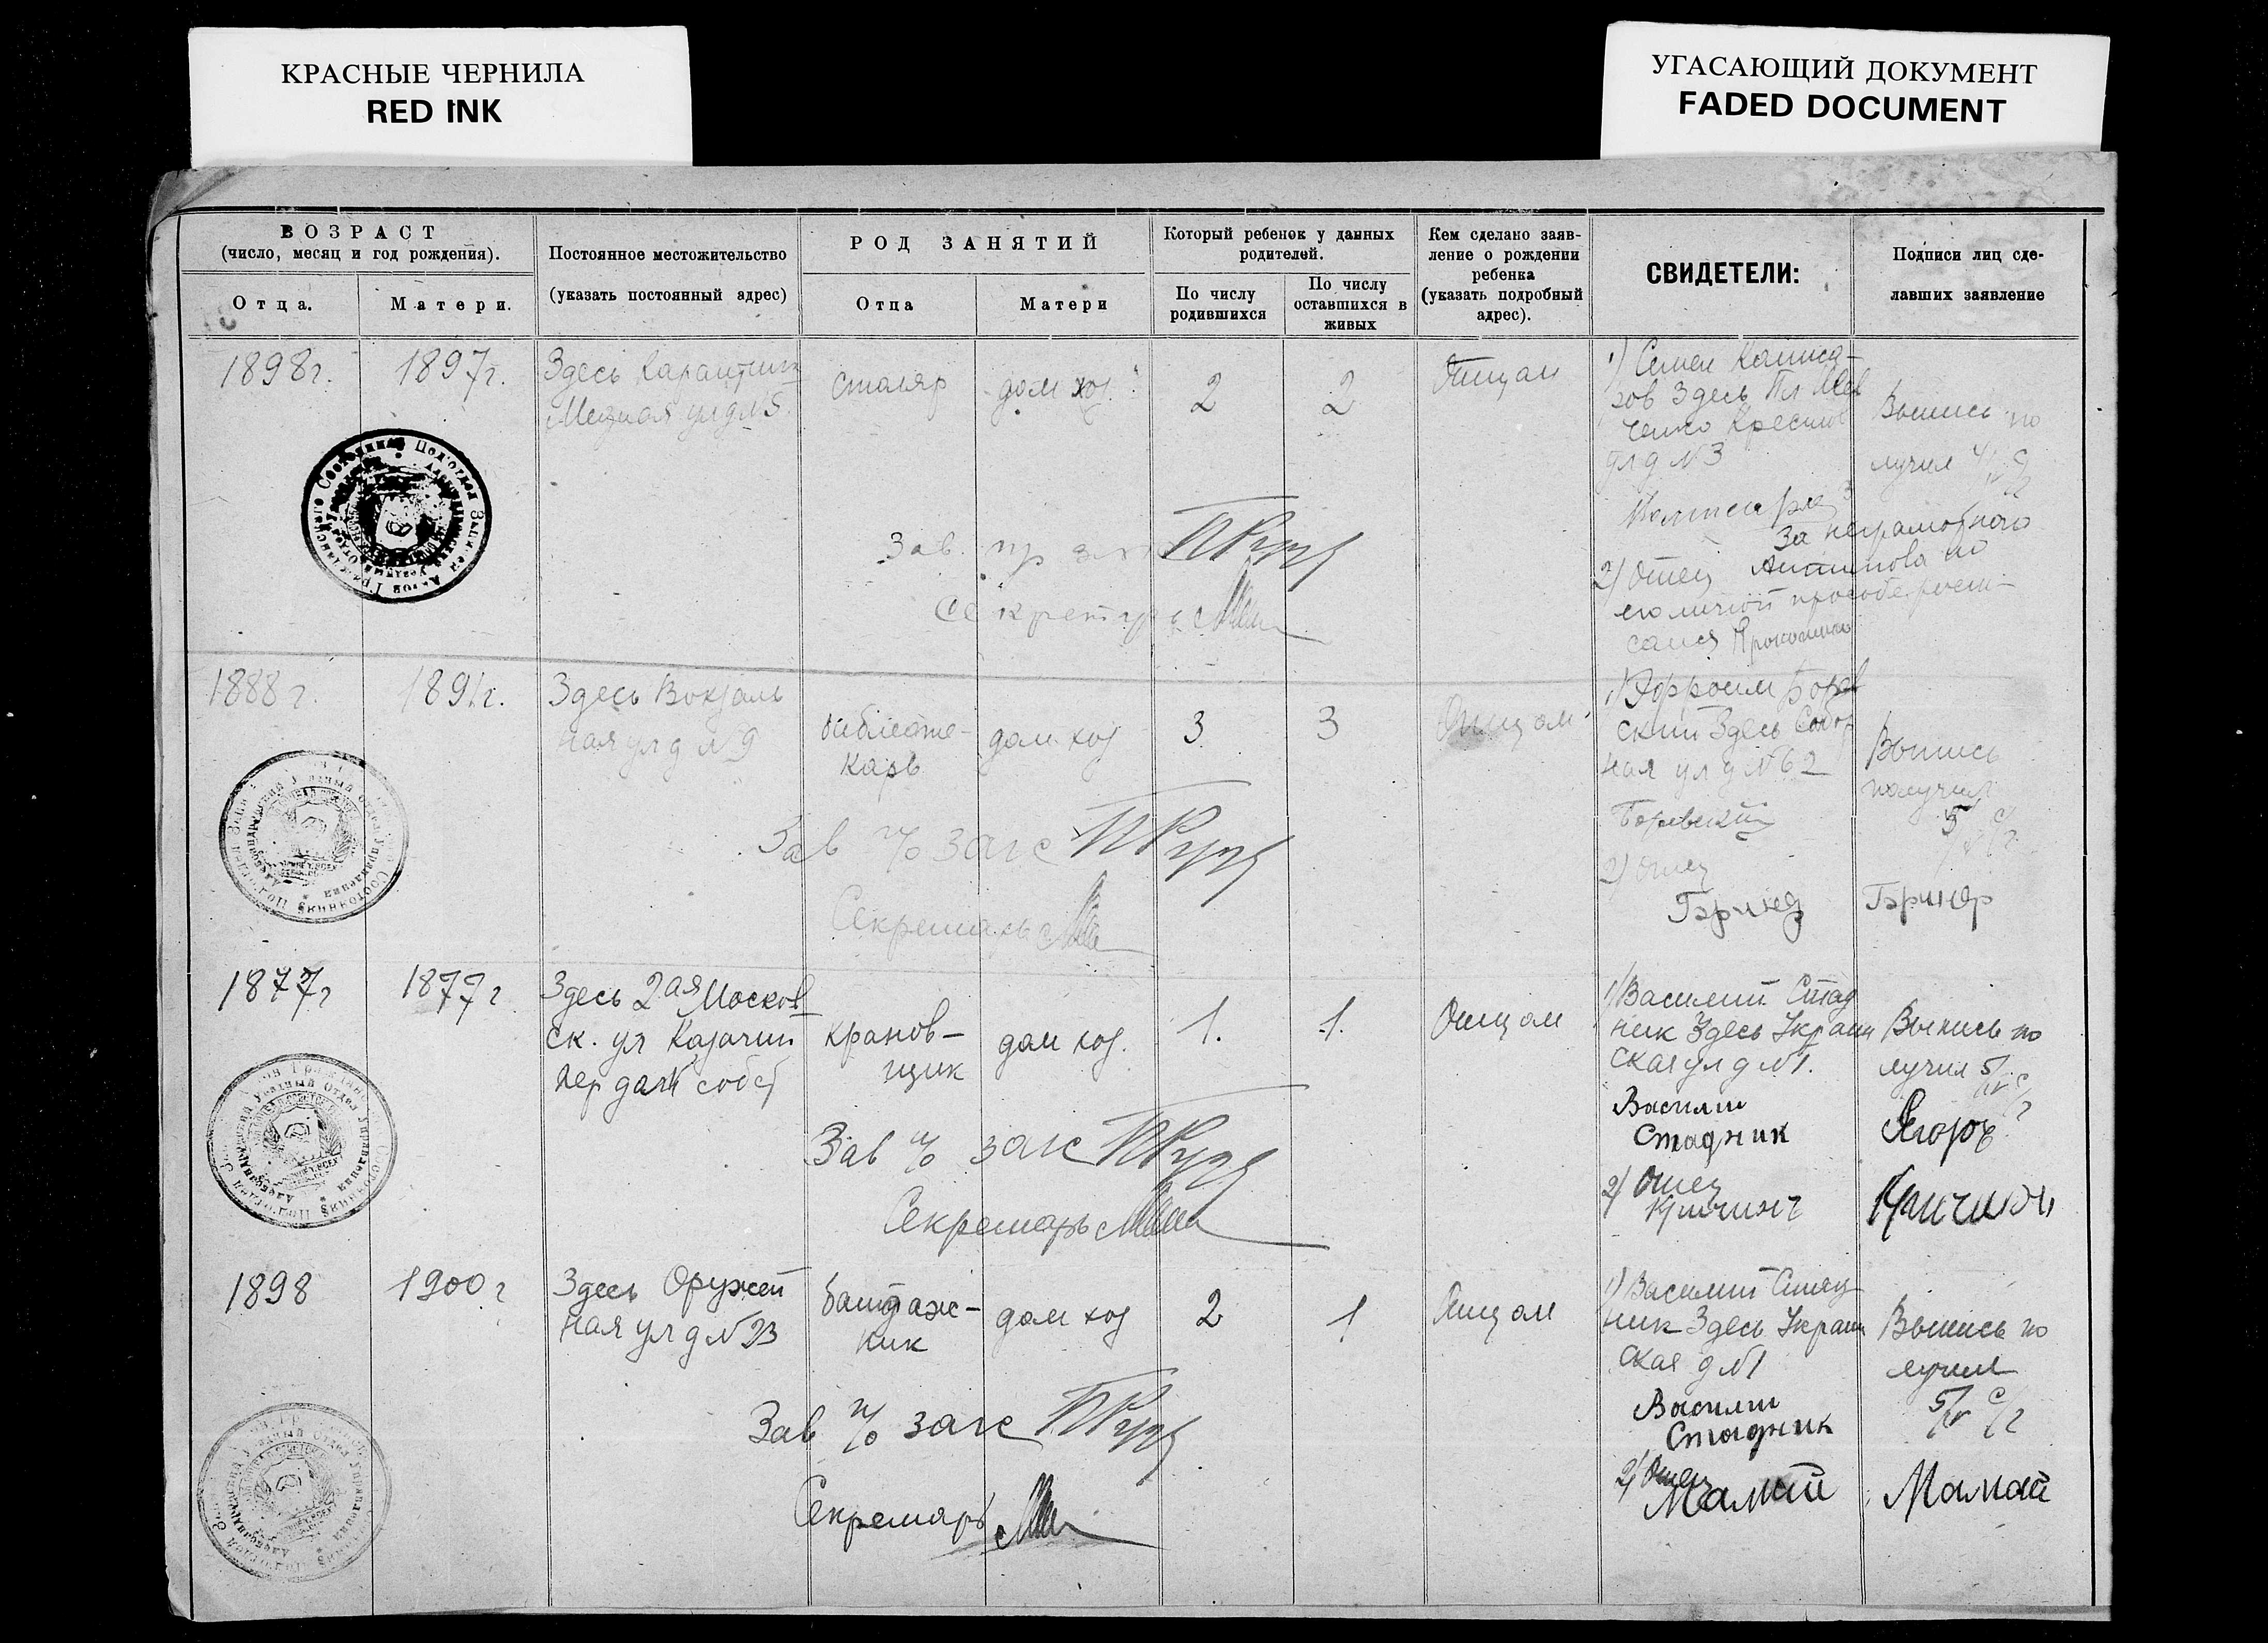 КРАСНЫЕ ЧЕРНИЛА
RED INK
УГАСАЮЩИЙ ДОКУМЕНТ
FADED DOCUMENT
ВОЗРАСТ
(число, месяц и год рождения).
Отца.
Матери.
Постоянное местожительство
(указать постоянный адрес)
РОД ЗАНЯТИЙ
Отца
Матери
Который ребенок у данных
родителей.
По числу
родившихся
По числу
оставшихся в
живых
Кем сделано заяв-
ление о рождении
ребенка
(указать подробный
адрес).
СВИДЕТЕЛИ:
Подписи лиц сде-
лавших заявление
1898 г.
1897 г.
Здесь Карантин
ул д № 5
столяр
дом хоз.
2
2
Отцом
1) Семен
Здесь Пл Шев
ченко
ул д № 3
За неграмотного
2) Отец Антипова по
его личной просьбе
Выпись по
лучил
Зав.
Секретарь
1888 г.
1891 г.
Здесь Вокзаль
ная ул д № 9
библиоте-
карь
дом. хоз
3
3
Отцом
1) Эфроим Борев
ский Здесь Собор
ная ул д № 62
2) Отец
Выпись
получил
5
Зав п/о загс
Секретарь
1877 г
1877 г
Здесь 2ая Москов
ск. ул Казачий
пер дом собст
кранов-
щик
дом хоз.
1.
1.
Отцом
1) Василий Стад
ник Здесь Украин
ская ул д № 1.
Василий
Стадник
2) Отец
Кричинъ
Выпись по
лучил 5/IV с/г
Ягоръ
Кричинъ
Зав п/о загс
Секретарь
1898
1900 г
Здесь Оружей
ная ул д № 23
бандаж-
ник
дом хоз
2
1
Отцом
1) Василий Стад
ник Здесь Украин
ская д № 1
Василий
Стадник
2) Отец
Мамай
Выпись по
лучил
5/IV с/г
Мамай
Зав п/о загс
Секретарь